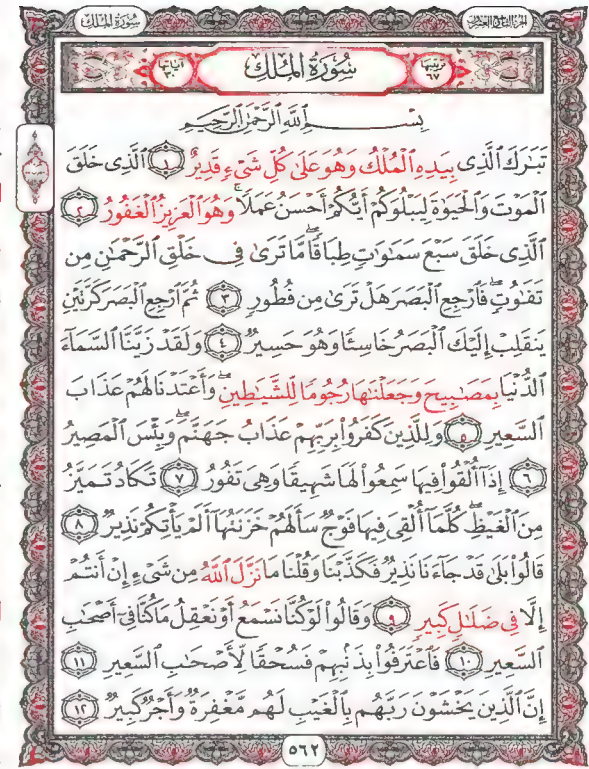 سُورَةُ المُلْكِ
الجزء التاسع والعشرون
ترتيبها ٦٧
سُورَةُ المُلْكِ
آياتها ٣٠
بِسْمِ اللَّهِ الرَّحْمَٰنِ الرَّحِيمِ
تَبَٰرَكَ ٱلَّذِى بِيَدِهِ ٱلْمُلْكُ وَهُوَ عَلَىٰ كُلِّ شَىْءٍ قَدِيرٌ ١ ٱلَّذِى خَلَقَ
ٱلْمَوْتَ وَٱلْحَيَوٰةَ لِيَبْلُوَكُمْ أَيُّكُمْ أَحْسَنُ عَمَلًا ۚ وَهُوَ ٱلْعَزِيزُ ٱلْغَفُورُ ٢
ٱلَّذِى خَلَقَ سَبْعَ سَمَٰوَٰتٍ طِبَاقًا ۖ مَّا تَرَىٰ فِى خَلْقِ ٱلرَّحْمَٰنِ مِن
تَفَٰوُتٍ ۖ فَٱرْجِعِ ٱلْبَصَرَ هَلْ تَرَىٰ مِن فُطُورٍ ٣ ثُمَّ ٱرْجِعِ ٱلْبَصَرَ كَرَّتَيْنِ
يَنقَلِبْ إِلَيْكَ ٱلْبَصَرُ خَاسِئًا وَهُوَ حَسِيرٌ ٤ وَلَقَدْ زَيَّنَّا ٱلسَّمَآءَ
ٱلدُّنْيَا بِمَصَٰبِيحَ وَجَعَلْنَٰهَا رُجُومًا لِّلشَّيَٰطِينِ ۖ وَأَعْتَدْنَا لَهُمْ عَذَابَ
ٱلسَّعِيرِ ٥ وَلِلَّذِينَ كَفَرُوا۟ بِرَبِّهِمْ عَذَابُ جَهَنَّمَ ۖ وَبِئْسَ ٱلْمَصِيرُ
٦ إِذَآ أُلْقُوا۟ فِيهَا سَمِعُوا۟ لَهَا شَهِيقًا وَهِىَ تَفُورُ ٧ تَكَادُ تَمَيَّزُ
مِنَ ٱلْغَيْظِ ۖ كُلَّمَآ أُلْقِىَ فِيهَا فَوْجٌ سَأَلَهُمْ خَزَنَتُهَآ أَلَمْ يَأْتِكُمْ نَذِيرٌ ٨
قَالُوا۟ بَلَىٰ قَدْ جَآءَنَا نَذِيرٌ فَكَذَّبْنَا وَقُلْنَا مَا نَزَّلَ ٱللَّهُ مِن شَىْءٍ إِنْ أَنتُمْ
إِلَّا فِى ضَلَٰلٍ كَبِيرٍ ٩ وَقَالُوا۟ لَوْ كُنَّا نَسْمَعُ أَوْ نَعْقِلُ مَا كُنَّا فِىٓ أَصْحَٰبِ
ٱلسَّعِيرِ ١٠ فَٱعْتَرَفُوا۟ بِذَنۢبِهِمْ فَسُحْقًا لِّأَصْحَٰبِ ٱلسَّعِيرِ ١١
إِنَّ ٱلَّذِينَ يَخْشَوْنَ رَبَّهُم بِٱلْغَيْبِ لَهُم مَّغْفِرَةٌ وَأَجْرٌ كَبِيرٌ ١٢
٥٦٢